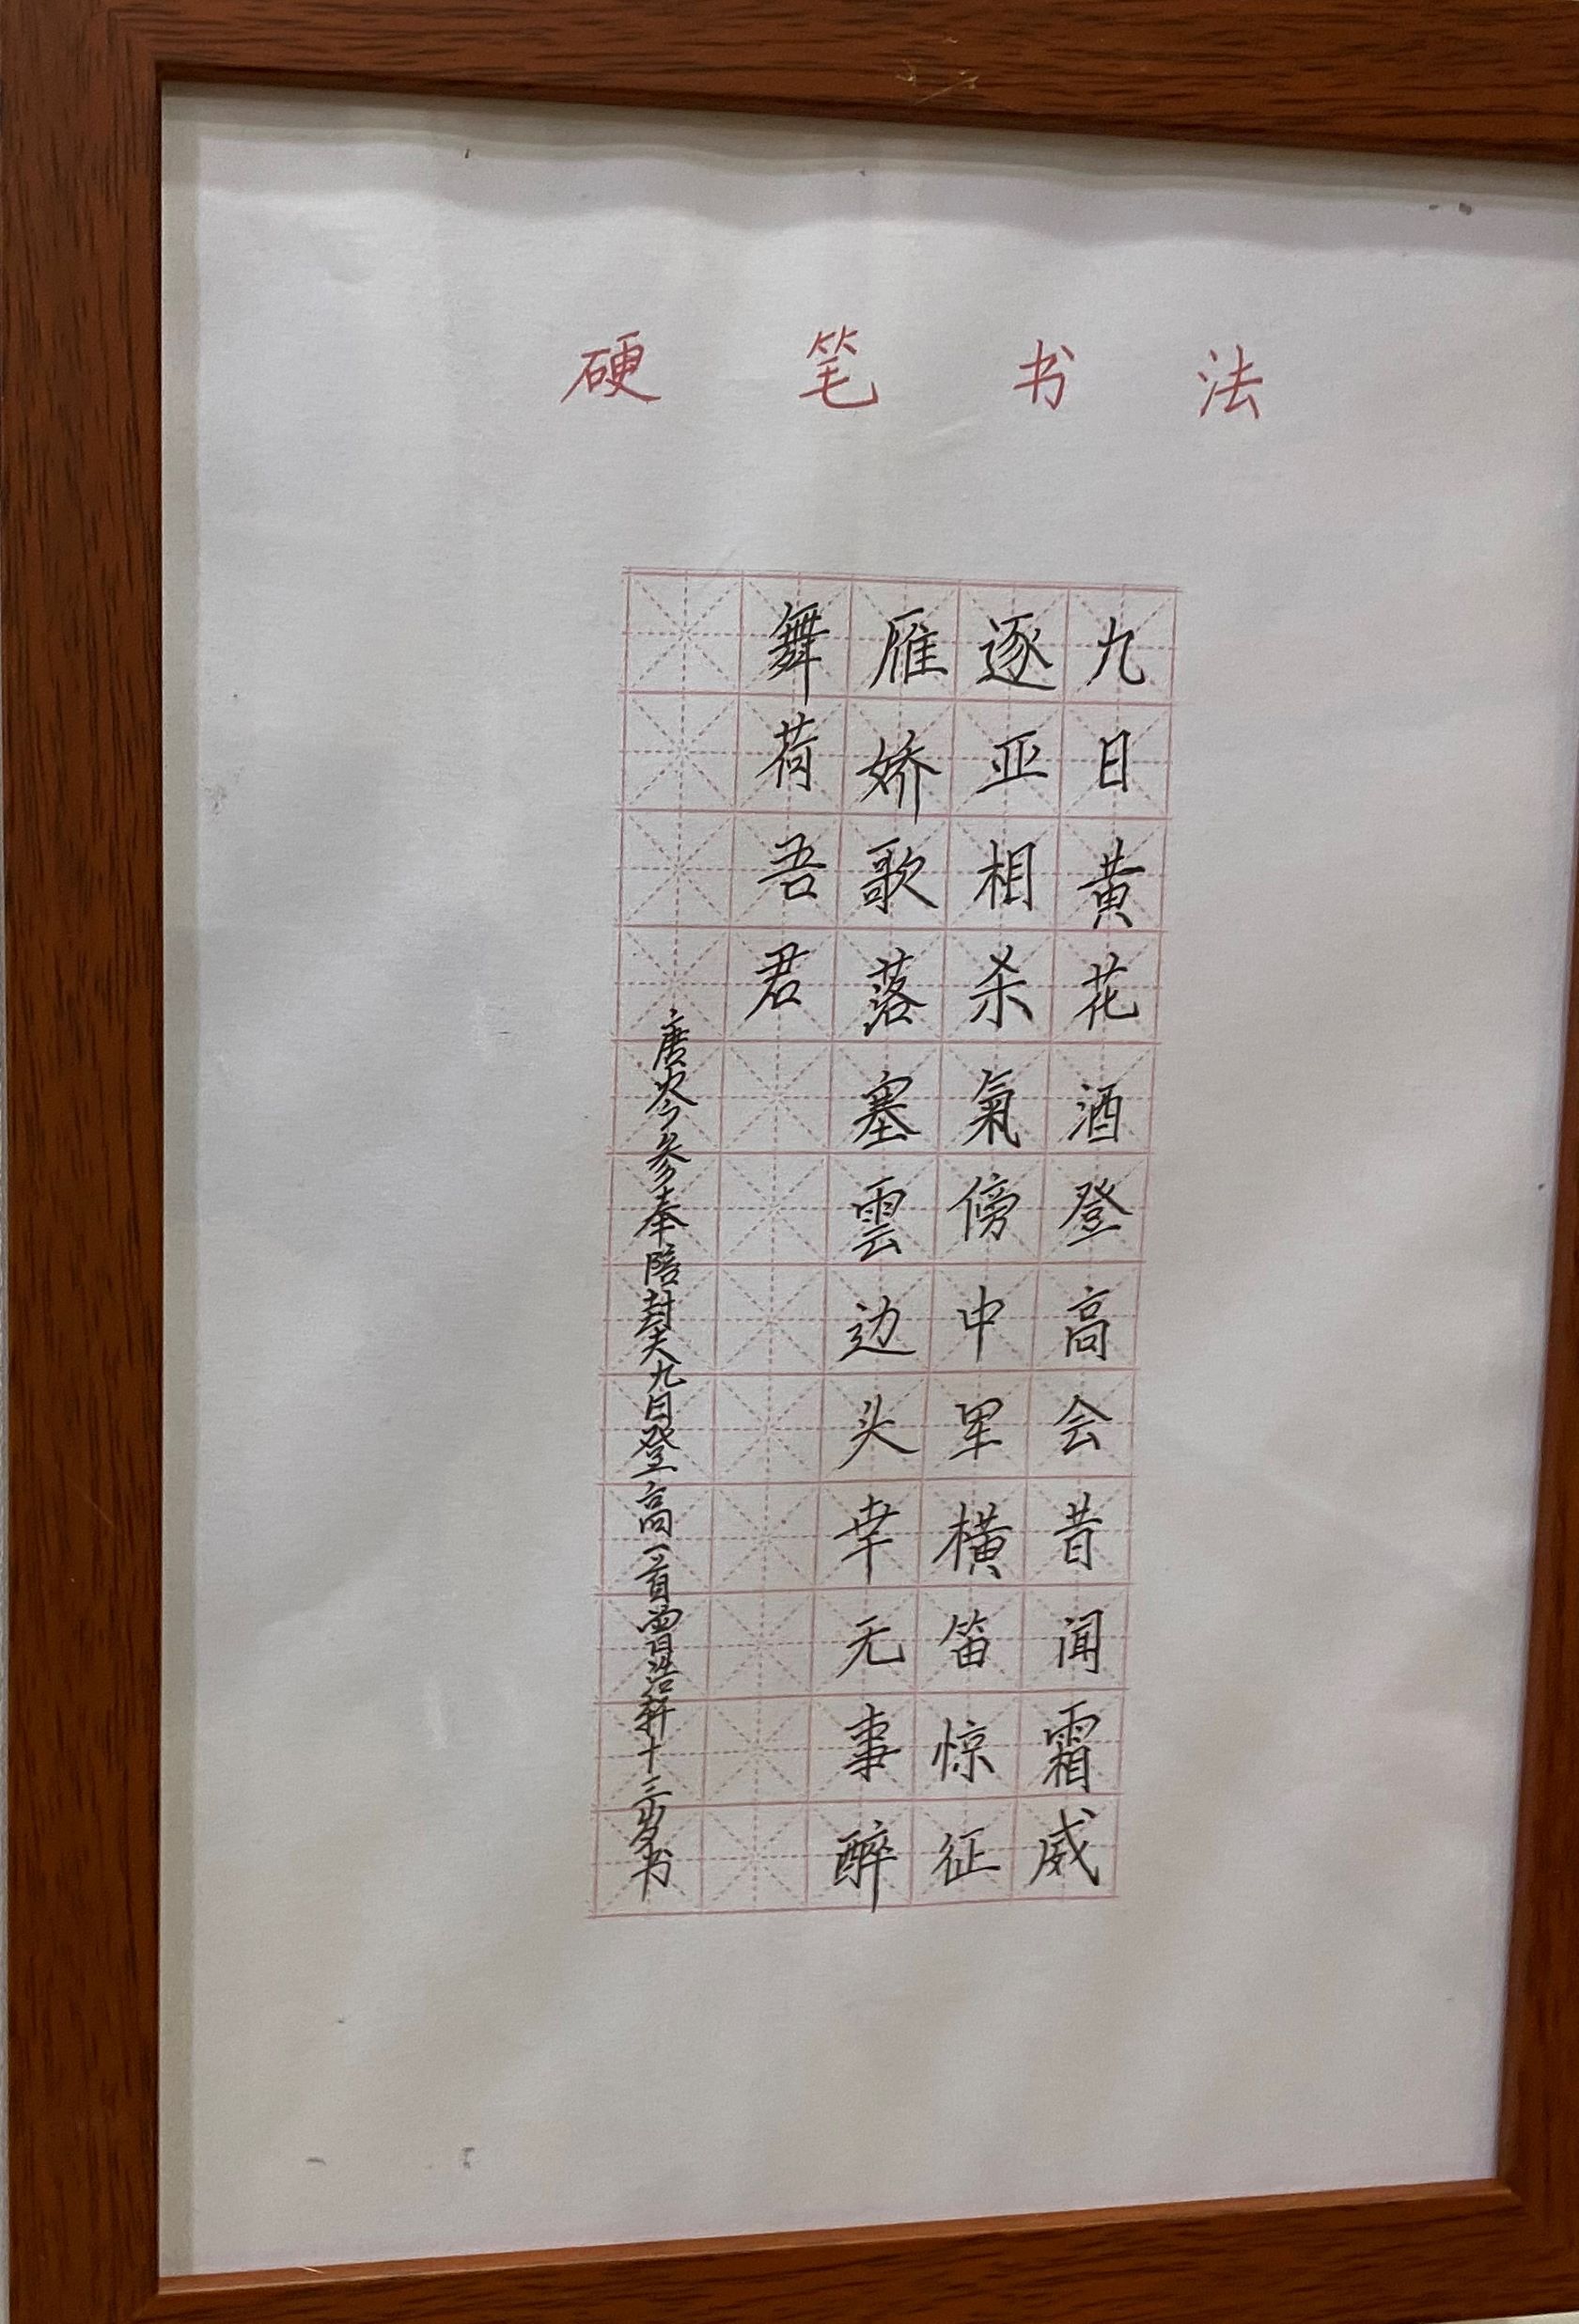 硬笔书法
九日黄花酒登高会昔闻霜威
逐亚相杀氣傍中军横笛惊征
雁娇歌落塞雲边头幸无事醉
舞荷吾君
唐岑参奉陪封大夫九日登高一首曾浩轩十三岁书